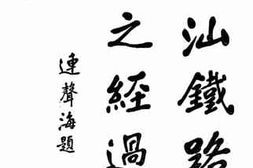 汕鐵路
之經過
連聲海題